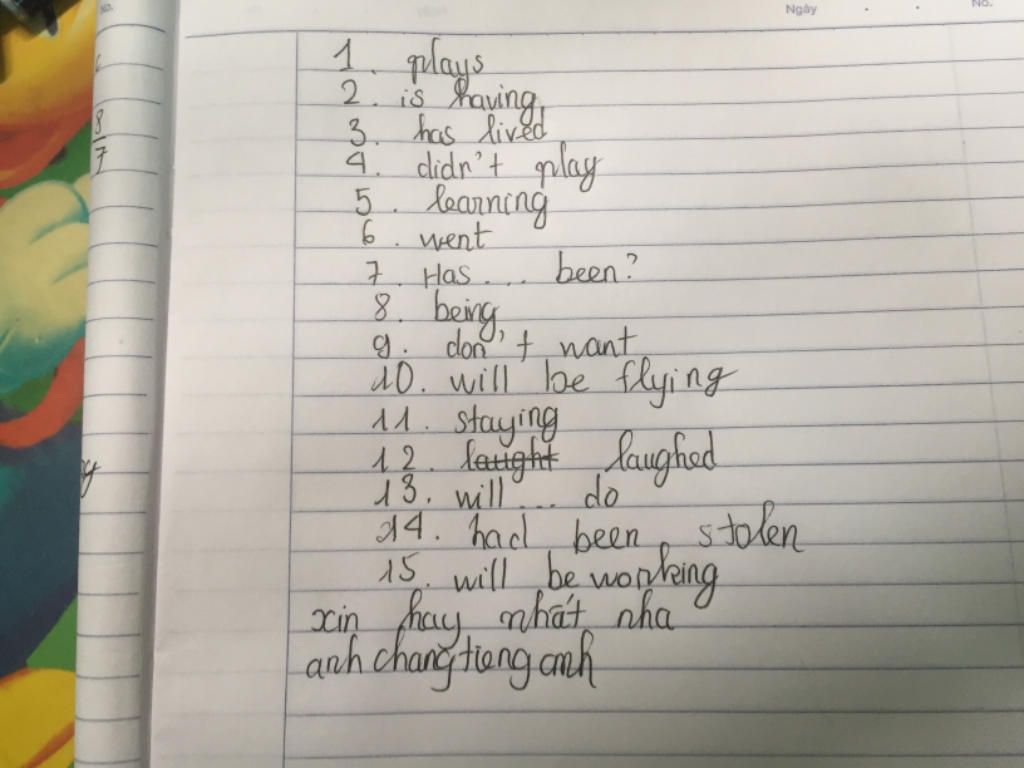 No.
Ngày . . No.
8
7
1. plays
2. is having
3. has lived
4. didn't play
5. learning
6. went
7. Has .... been?
8. being
9. don't want
10. will be flying
11. staying
12. laught laughed
13. will ... do
14. had been stolen
15. will be working
xin hay nhất nha
anh chang tieng anh